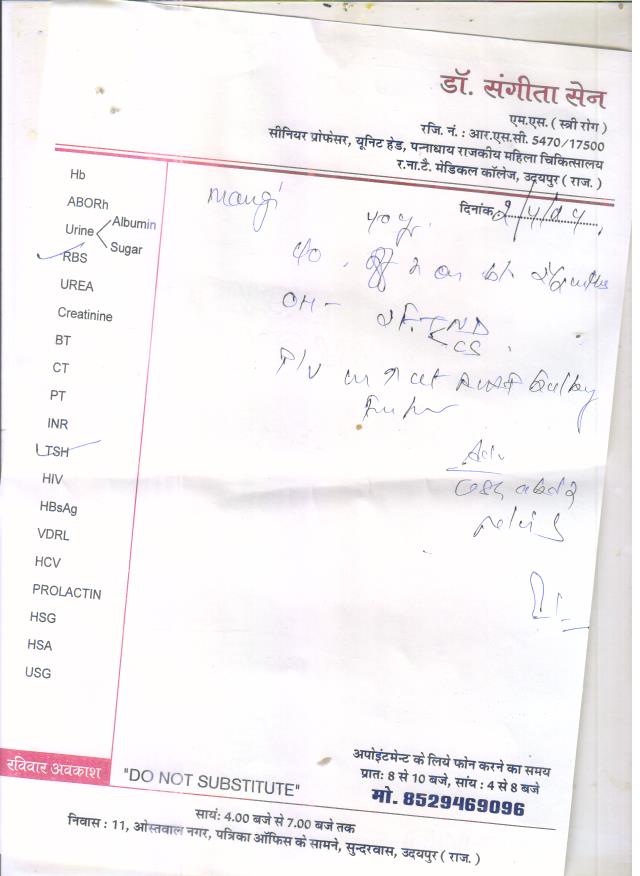 डॉ. संगीता सेन
एम.एस. ( स्त्री रोग )
रजि. नं. : आर.एस.सी. 5470/17500
सीनियर प्रोफेसर, यूनिट हेड, पन्नाधाय राजकीय महिला चिकित्सालय
र.ना.टै. मेडिकल कॉलेज, उदयपुर ( राज. )
दिनांक
Mangi
40 yr.
OH -
P/V
Adv
pelvis
Hb
ABORh
Urine Albumin
Sugar
RBS
UREA
Creatinine
BT
CT
PT
INR
TSH
HIV
HBsAg
VDRL
HCV
PROLACTIN
HSG
HSA
USG
रविवार अवकाश
"DO NOT SUBSTITUTE"
अपोइंटमेन्ट के लिये फोन करने का समय
प्रातः 8 से 10 बजे, सांय : 4 से 8 बजे
मो. 8529469096
सायं: 4.00 बजे से 7.00 बजे तक
निवास : 11, ओस्तवाल नगर, पत्रिका ऑफिस के सामने, सुन्दरवास, उदयपुर ( राज. )